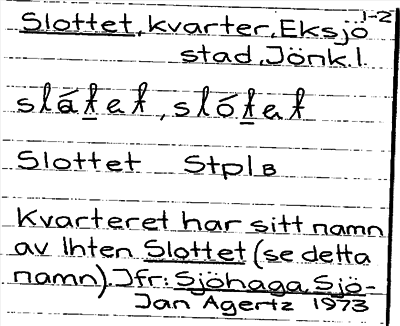 Slottet, kvarter, Eksjö 1-2
stad, Jönk.l.
slátet, slótet
Slottet Stpl B
Kvarteret har sitt namn
av lhten Slottet (se detta
namn). Jfr: Sjöhaga, Sjö-
Jan Agertz 1973